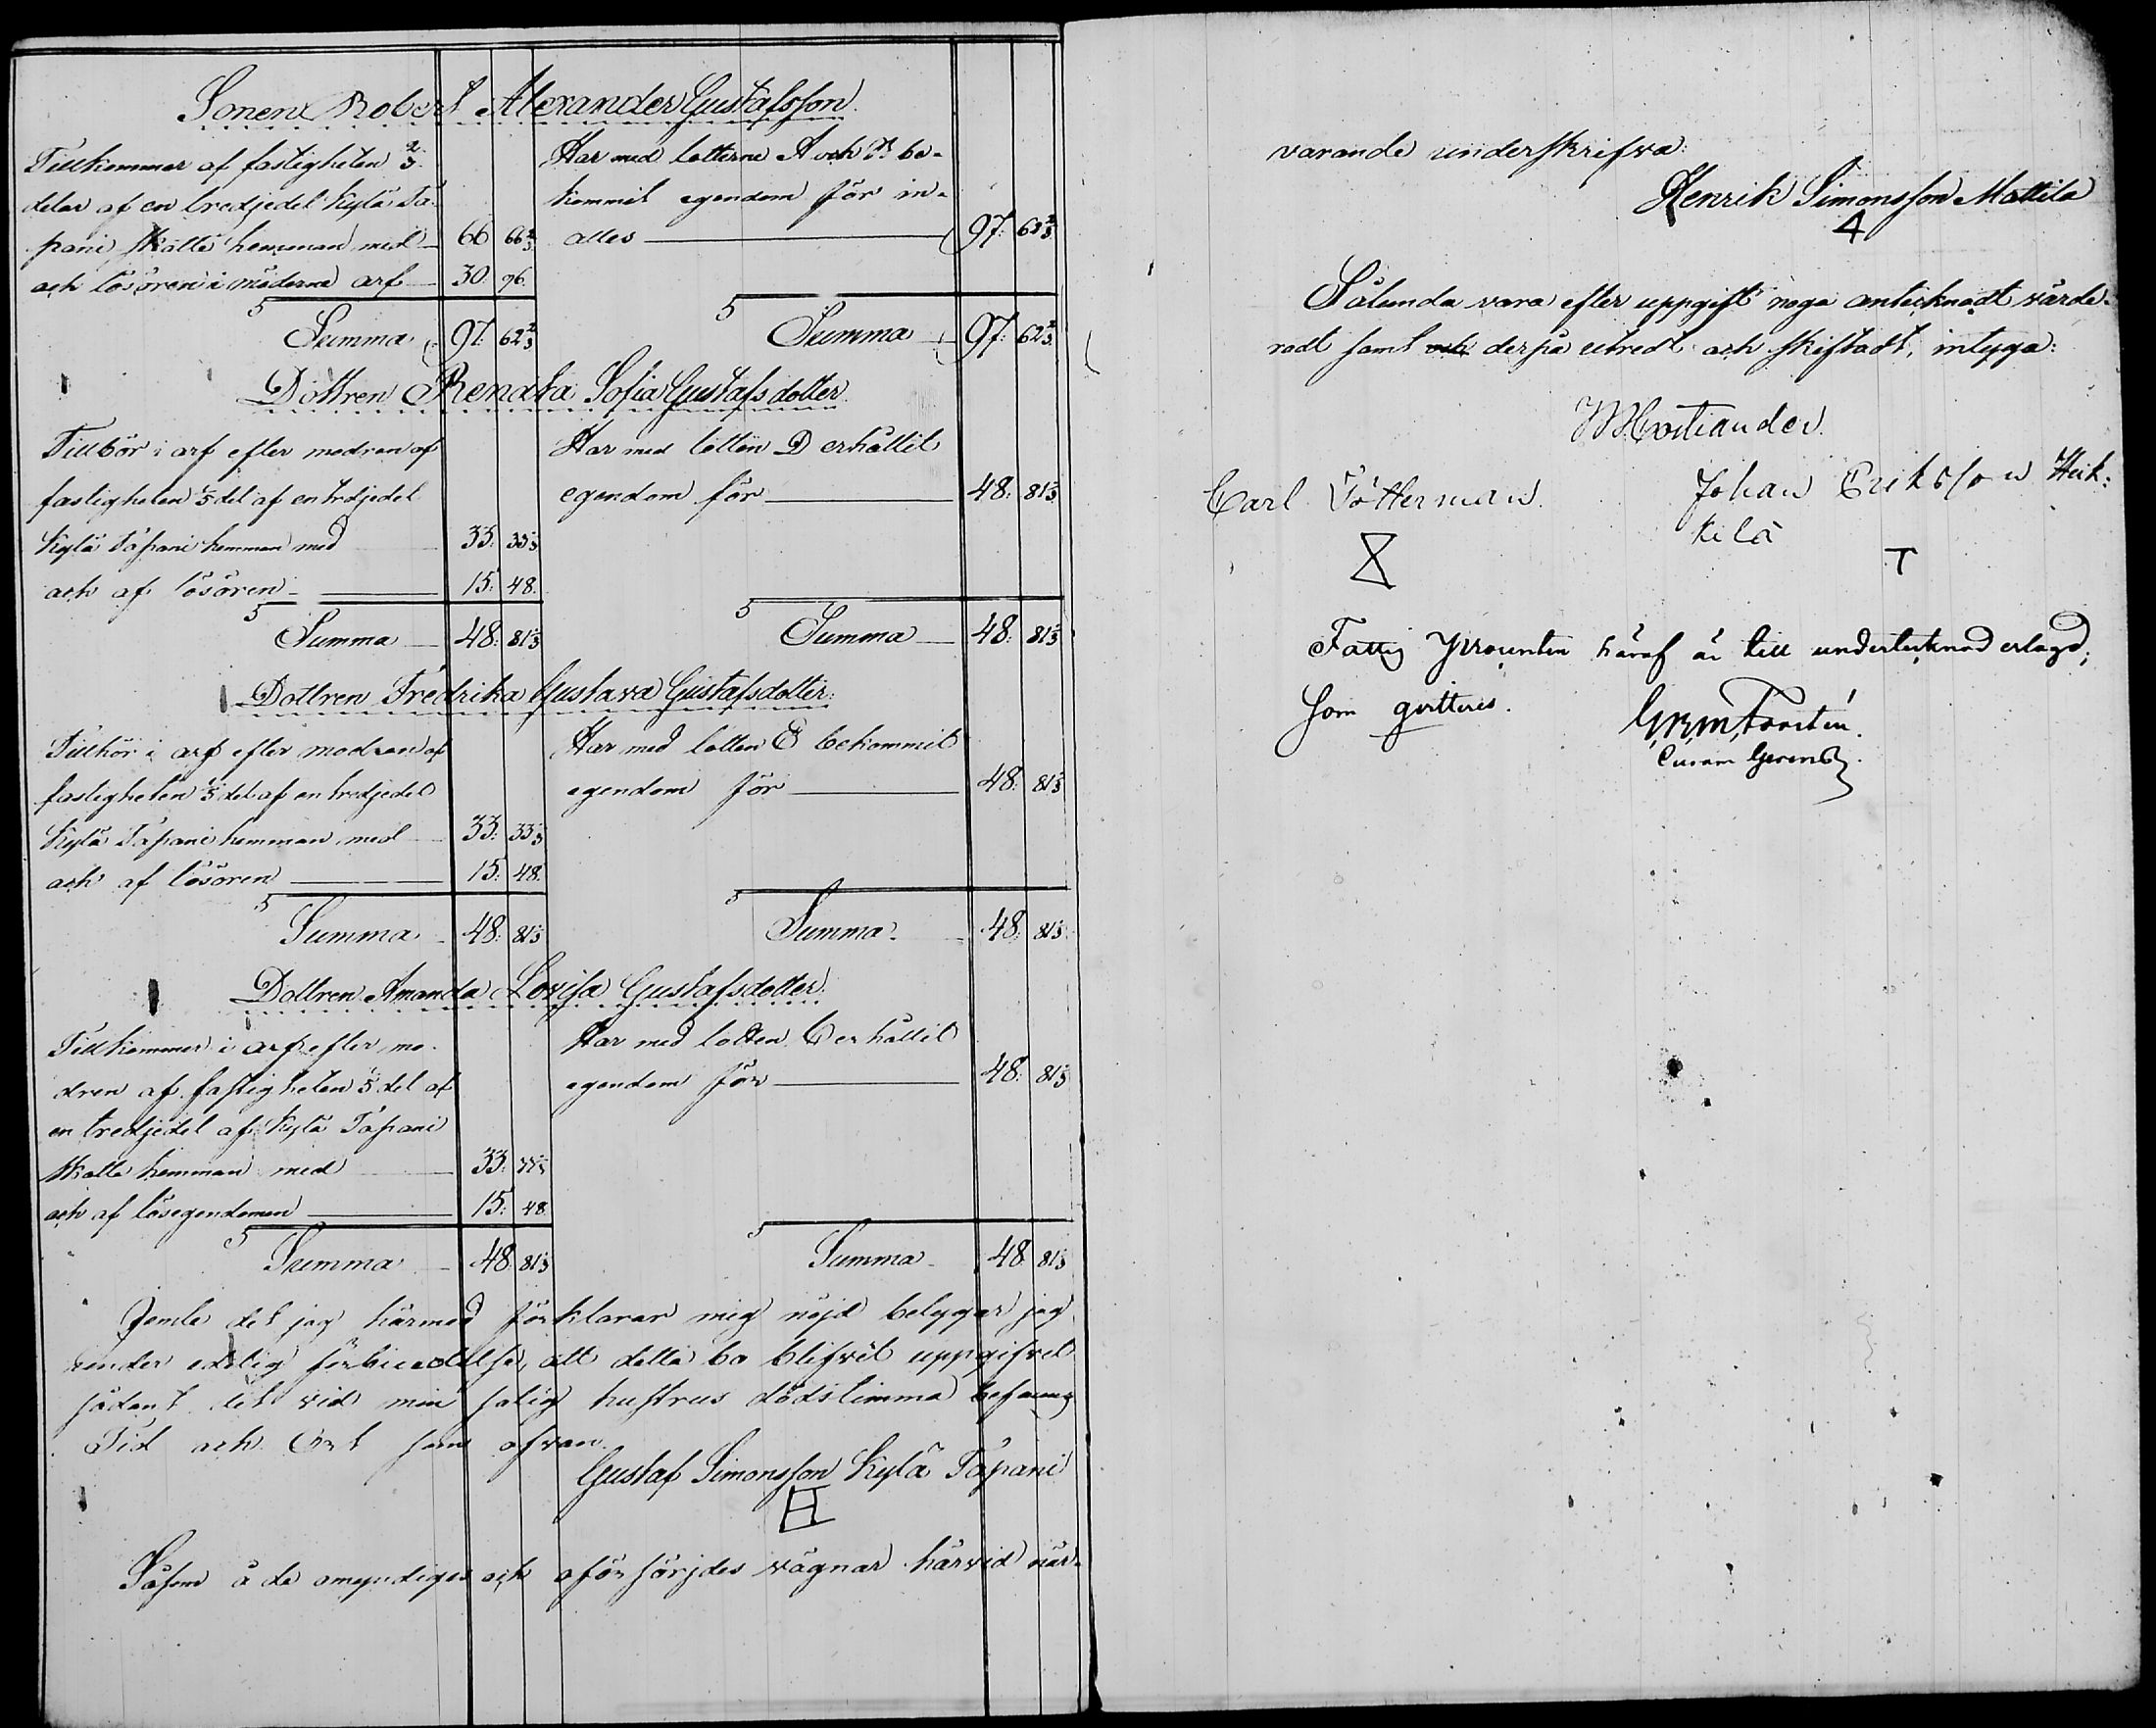 Sonen Robert Alexander Gustafsson.
Tillkommer af fastigheten 2/5
delar af en tredjedel Kylä Tä-
pani skatte hemman med 66 66 2/3
och lösören i möderne arf 30. 96.
Summa 97: 62 2/3
Har med lotterne A och B be-
kommit egendom för in-
alles 97: 62 2/3
Summa 97: 62 2/3
Dottren Renata Sofia Gustafsdotter.
Tillhör i arf efter modren af
fastigheten 1/5 del af en tredjedel
Kylä Täpani hemman med 33: 33 1/3
och af lösören 15: 48.
Summa 48: 81 1/3
Har med lotten D erhållit
egendom för 48: 81 1/3
Summa 48: 81 1/3
Dottren Fredrika Gustava Gustafsdotter.
Tillhör i arf efter modren af
fastigheten 1/5 del af en tredjedel
Kylä Täpani hemman med 33: 33 1/3
och af lösören 15: 48.
Summa 48: 81 1/3
Har med lotten E bekommit
egendom för 48: 81 1/3
Summa 48: 81 1/3
Dottren Amanda Lovisa Gustafsdotter.
Tillkommer i arf efter mo-
dren af fastigheten 1/5 del af
en tredjedel af Kylä Täpani
skatte hemman med 33: 33 1/3
och af lösegendomen 15: 48
Summa 48 81 1/3
Har med lotten C erhållit
egendom för 48: 81 1/3
Summa 48 81 1/3
Jemte det jag härmed förklarar mig nöjd betygar jag
under edelig förbindelse, att detta bo blifvit uppgifvet
sådant det vid min salig hustrus dödstimma befanns
Tid och Ort som ofvan.
Gustaf Simonsson Kylä Täpani
Såsom å de omyndiges och oförsörjdes vägnar härvid när-
varande underskrifva:
Henrik Simonsson Mattila
Sålunda vara efter uppgift noga antecknadt värde-
radt samt och derpå utredt och skiftadt, intyga:
Carl Tötterman. Johan Eriksson Heik:
kilä
Fattig procenten häraf är till undertecknad erlagd;
Som qvitteras. Forstén.
Curam Gerens